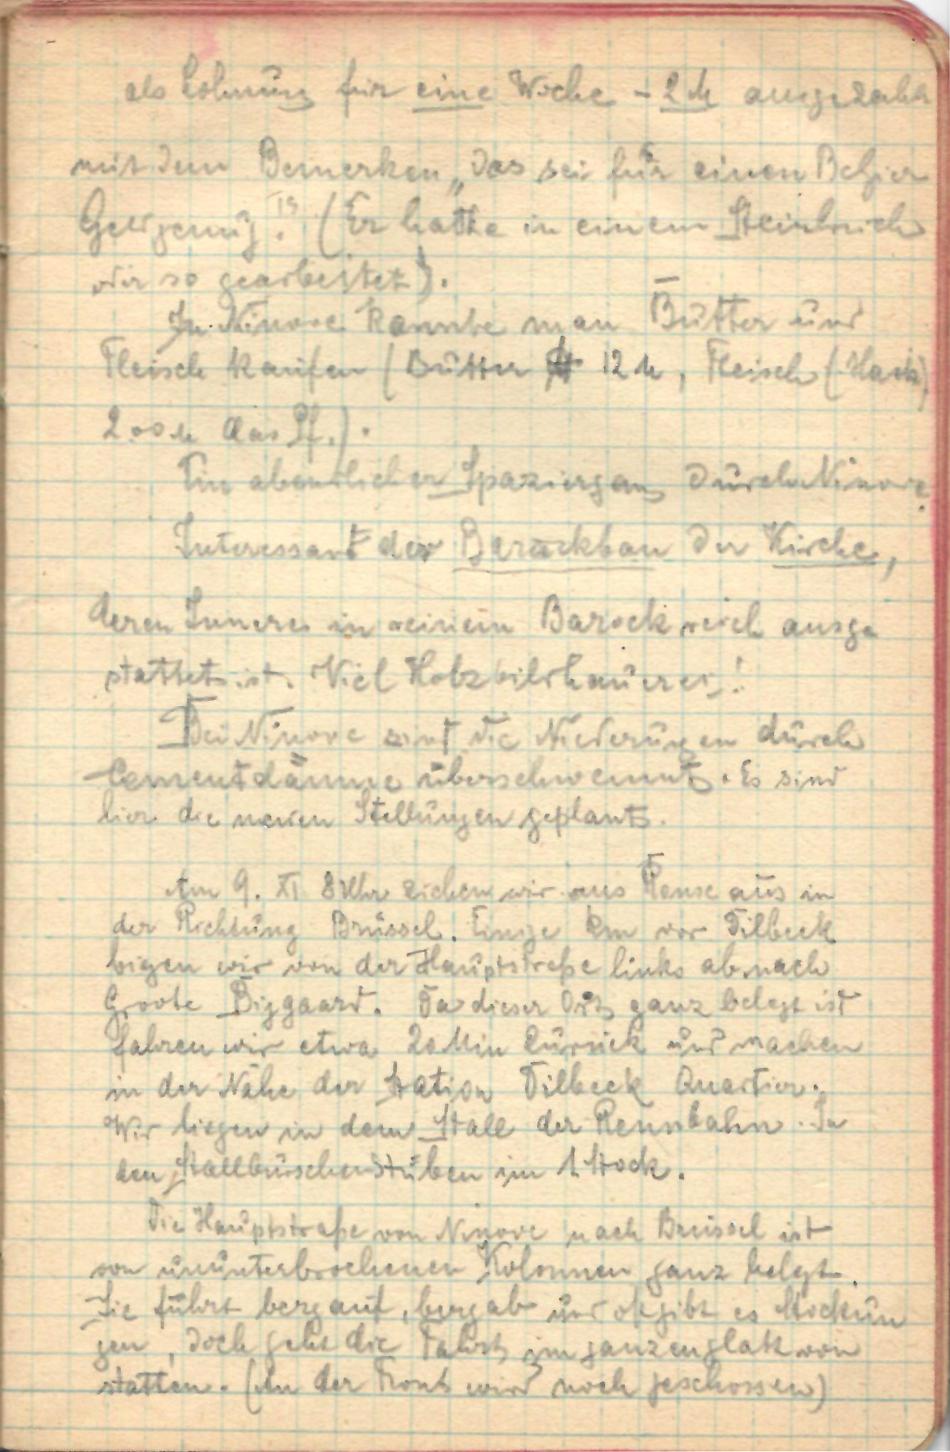 als Löhnung für eine Woche - 2 M ausgezahlt
mit dem Bemerken „das sei für einen Belgier
Geld genug!" (Er hatte in einem Steinbruch
nur so gearbeitet).
In Ninove konnte man Butter und
Fleisch kaufen (Butter 12 M, Fleisch (Hack)
2.00 M das Pf.).
Ein abendlicher Spaziergang durch Ninove.
Interessant der Barockbau der Kirche,
deren Inneres in reinem Barock reich ausge
stattet ist. Viel Holzbildhauerei!
Bei Ninove sind die Niederungen durch
Cementdämme überschwemmt. Es sind
hier die neuen Stellungen geplant.
Am 9. XI 8 Uhr ziehen wir aus aus in
der Richtung Brüssel. Einige Km vor Dilbeck
bigen wir von der Hauptstraße links ab nach
Groote Bijgaard. Da dieser Ort ganz belegt ist
fahren wir etwa 20 Min zurück und machen
in der Nähe der Station Dilbeck Quartier.
Wir liegen in dem Stall der Rennbahn. In
den Stallburschenstuben im 1. Stock.
Die Hauptstraße von Ninove nach Brüssel ist
von ununterbrochenen Kolonnen ganz belegt.
Sie führt bergauf, bergab und oft gibt es Stockun
gen, doch geht die Fahrt im ganzen glatt von
statten. (An der Front wird noch geschossen)